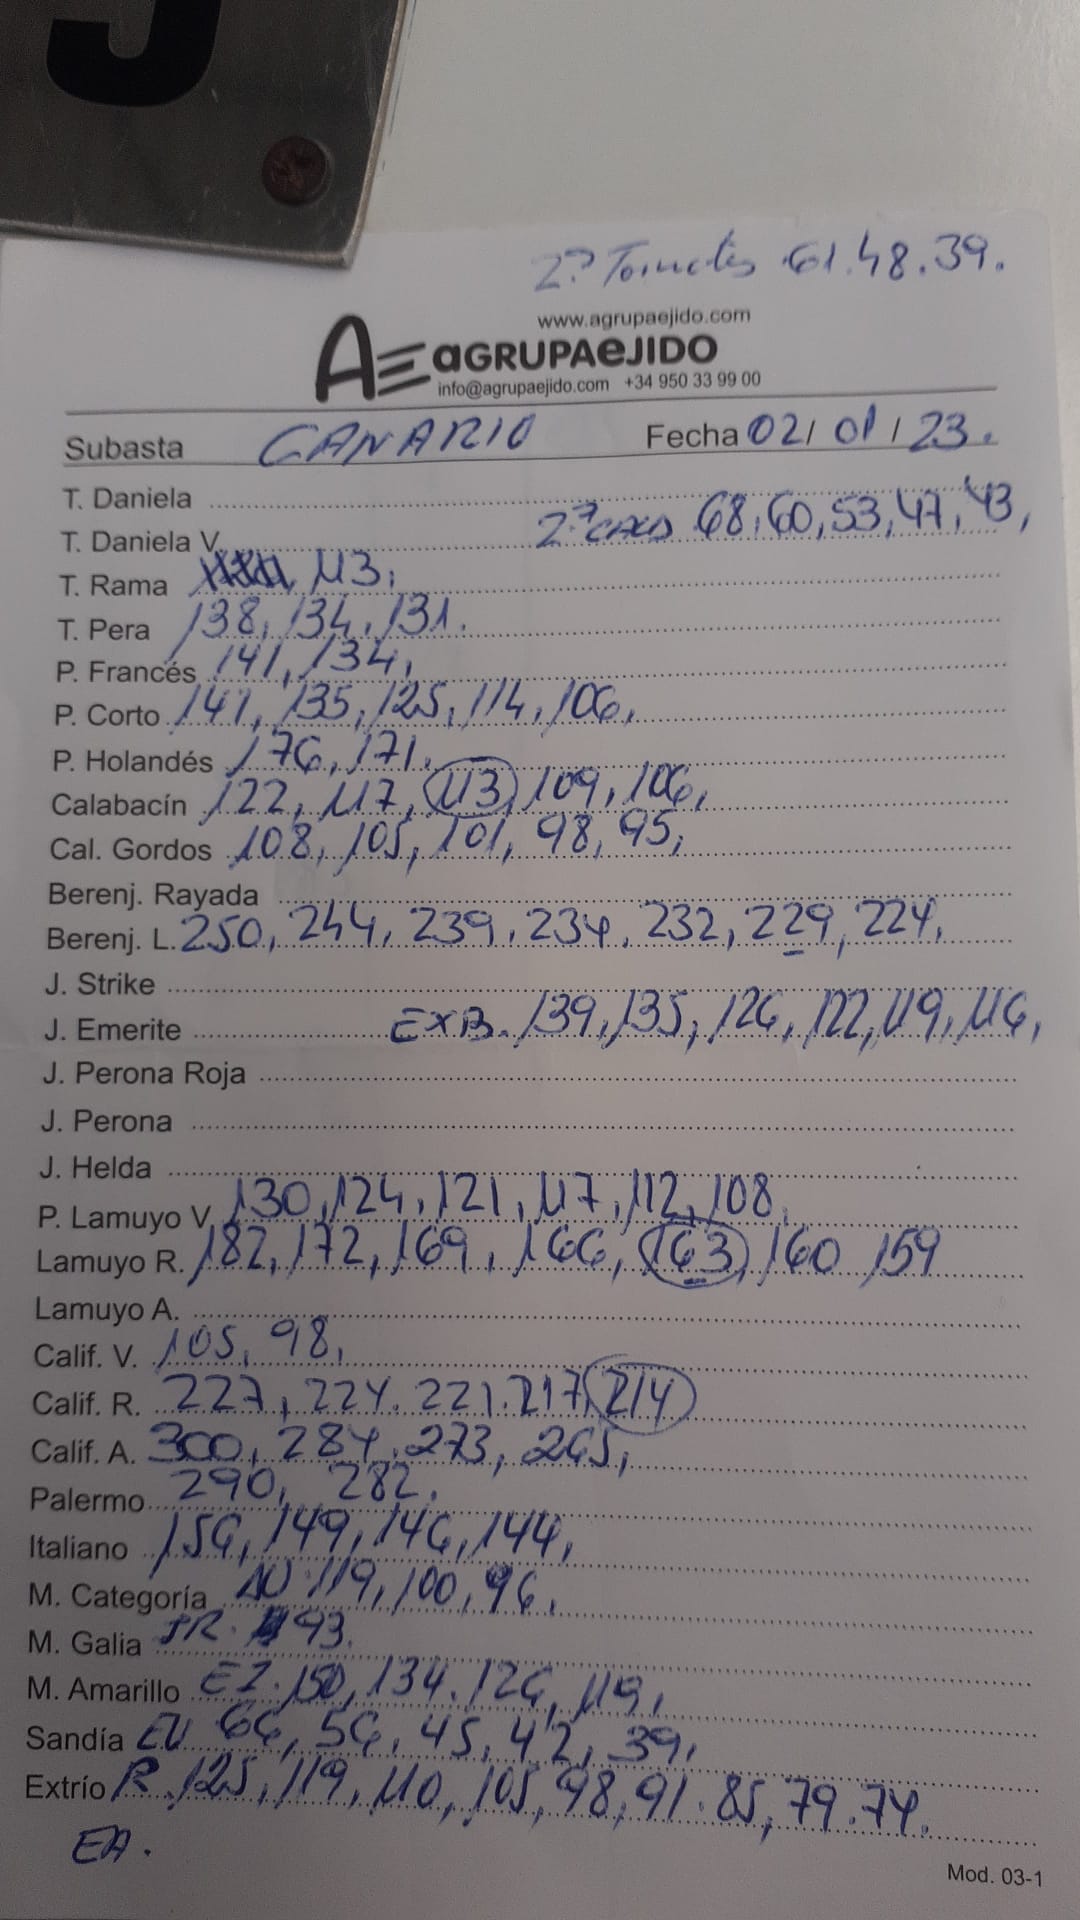 J
2ª Tomates 61.48.39.
www.agrupaejido.com
AE aGRUPAeJIDO
info@agrupaejido.com +34 950 33 99 00
Subasta CANARIO Fecha 02/01/23.
T. Daniela
2ª CALS 68,60,53,47,43,
T. Daniela V.
T. Rama 113,
T. Pera 138,134,131.
P. Francés 141,134,
P. Corto 141,135,125,114,106,
P. Holandés 176,171.
Calabacín 122,117,113,109,106,
Cal. Gordos 108,105,101,98,95,
Berenj. Rayada
Berenj. L. 250,244,239,234,232,229,224,
J. Strike
J. Emerite EXB. 139,135,126,122,119,116,
J. Perona Roja
J. Perona
J. Helda
P. Lamuyo V. 130,124,121,117,112,108
Lamuyo R. 182,172,169,166,163,160 159
Lamuyo A.
Calif. V. 105,98,
Calif. R. 227,224.221.217,214
Calif. A. 300,284,273,265,
Palermo 290, 282.
Italiano 156,149,146,144,
M. Categoría 119,100,96,
M. Galia 93.
M. Amarillo EZ.150,134.126,119,
Sandía EU 66,56,45,42,39,
Extrío R.125,119,110,105,98,91.85,79.74.
EA.
Mod. 03-1